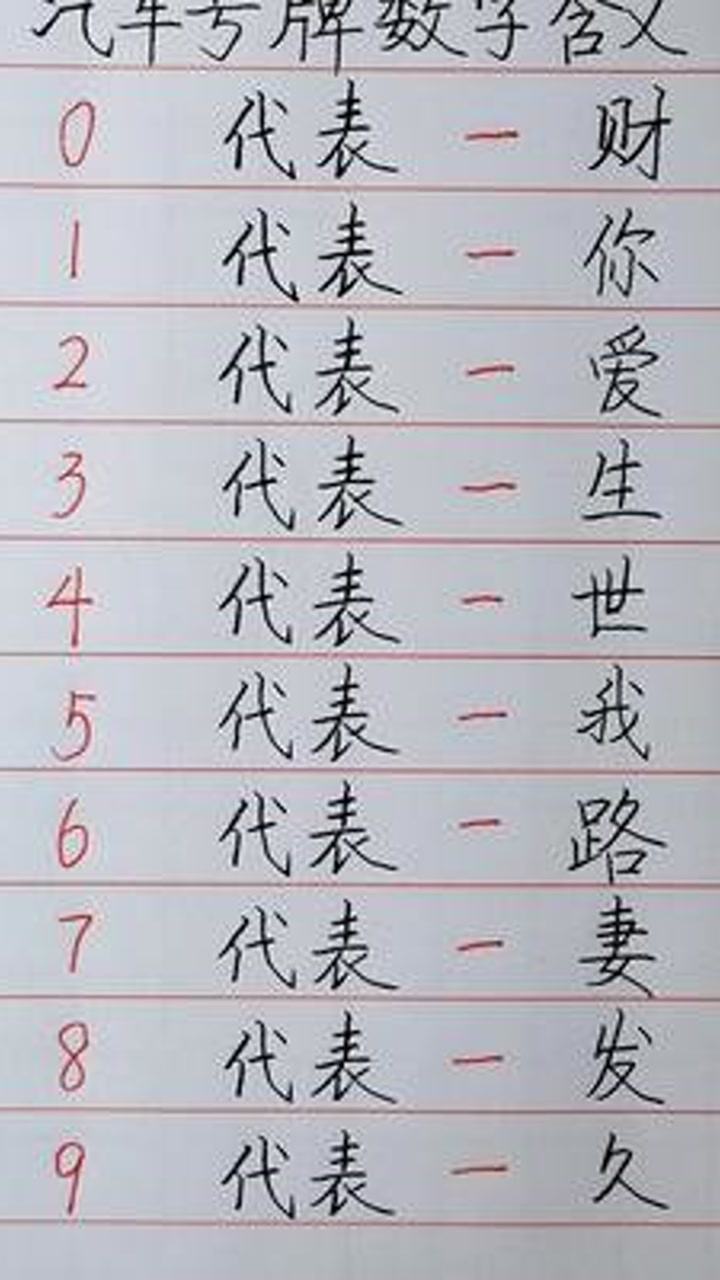 汽车号牌数字含义
0 代表 — 财
1 代表 — 你
2 代表 — 爱
3 代表 — 生
4 代表 — 世
5 代表 — 我
6 代表 — 路
7 代表 — 妻
8 代表 — 发
9 代表 — 久